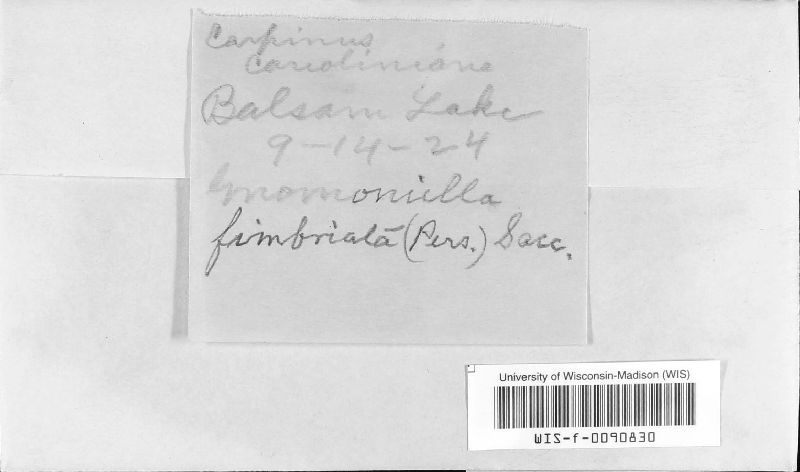 Carpinus
caroliniana
Balsam Lake
9-14-24
Gnomoniella
fimbriata (Pers.) Sacc.
University of Wisconsin-Madison (WIS)
WIS-f-0090830